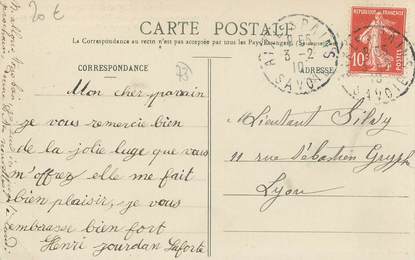 20 €
CARTE POSTALE
La Correspondance au recto n'est pas acceptée par tous les Pays Étrangers
CORRESPONDANCE
ADRESSE
73
Mon cher parrain
je vous remercie bien
de la jolie luge que vous
m'offrez elle me fait
bien plaisir, je vous
embrasse bien fort
Henri Jourdan Laforte
Lieutant Silvy
11 rue Sébastien Gryph
Lyon
AIX-LES-BAINS
3-2
10
SAVOIE
REPUBLIQUE FRANÇAISE
10
POSTES